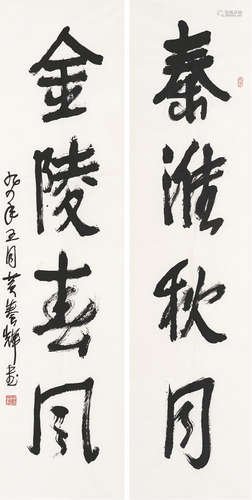 秦淮秋月
金陵春风
九四年五月黄养辉书